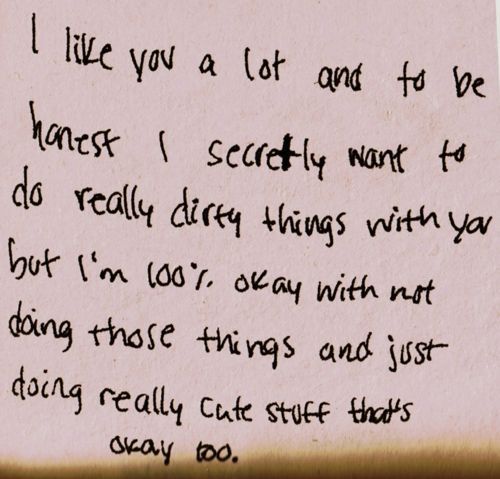 I like you a lot and to be
honest I secretly want to
do really dirty things with you
but I'm 100% okay with not
doing those things and just
doing really cute stuff that's
okay too.